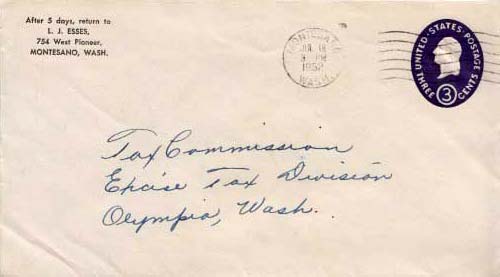 After 5 days, return to
L. J. ESSES,
754 West Pioneer,
MONTESANO, WASH.
MONTESANO
JUL 18
3 PM
1952
WASH.
UNITED·STATES·POSTAGE
THREE 3 CENTS
Tax Commission
Excise Tax Division
Olympia, Wash.